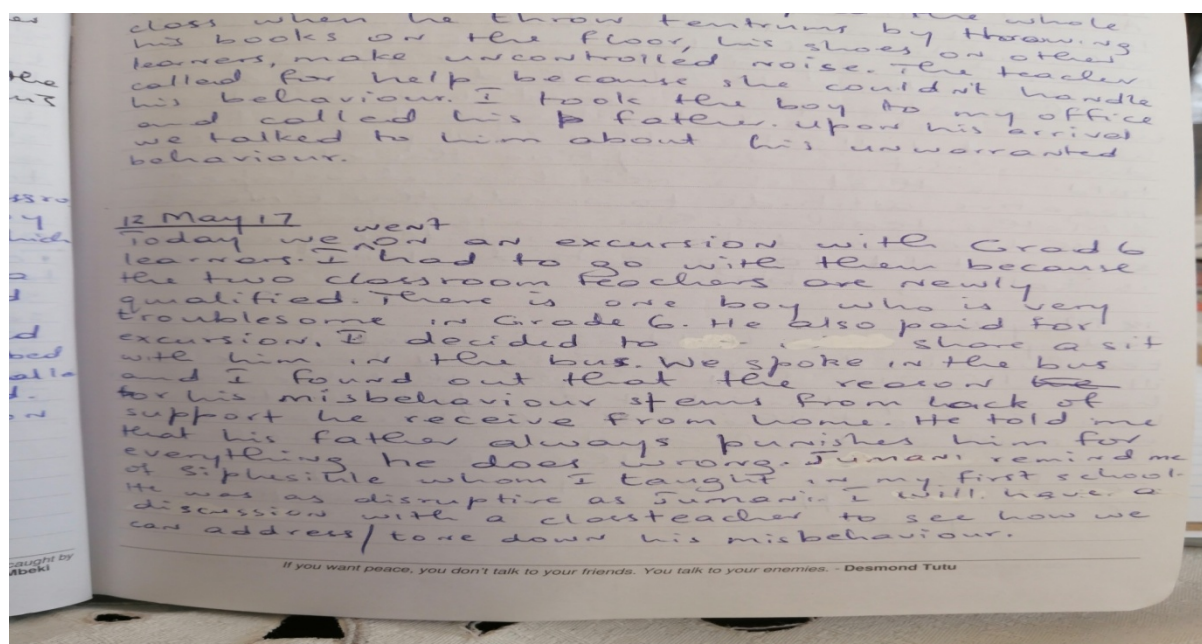 es
the
ssro
y
hich
d
d
bed
d.
on
caught by
Mbeki
the whole
class when he throw tentrums by throwing
his books on the floor, his shoes on other
learners, make uncontrolled noise. The teacher
called for help because she couldn't handle
his behaviour. I took the boy to my office
and called his father. Upon his arrival
we talked to him about his unwarranted
behaviour.
12 May 17
Today we went on an excursion with Grad 6
learners. I had to go with them because
the two classroom teachers are newly
qualified. There is one boy who is very
troublesome in Grade 6. He also paid for
excursion. I decided to share a sit
with him in the bus. We spoke in the bus
and I found out that the reason
for his misbehaviour stems from lack of
support he receive from home. He told me
that his father always punishes him for
everything he does wrong. Jumani remind me
of Siphesihle whom I taught in my first school.
He was as disruptive as Jumani. I will have a
discussion with a classteacher to see how we
can address/tone down his misbehaviour.
If you want peace, you don't talk to your friends. You talk to your enemies. - Desmond Tutu